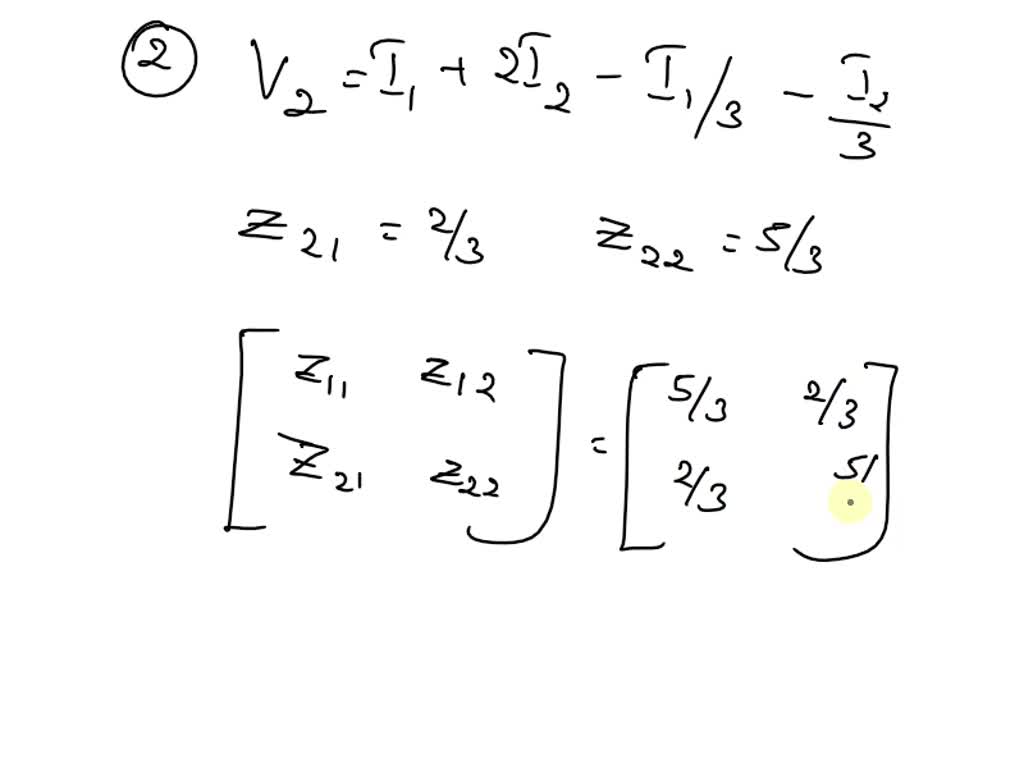 ② V₂ = I₁ + 2I₂ - I₁/3 - I₂/3
Z₂₁ = 2/3 Z₂₂ = 5/3
[ Z₁₁ Z₁₂ ] = [ 5/3 2/3 ]
[ Z₂₁ Z₂₂ ] [ 2/3 5/ ]